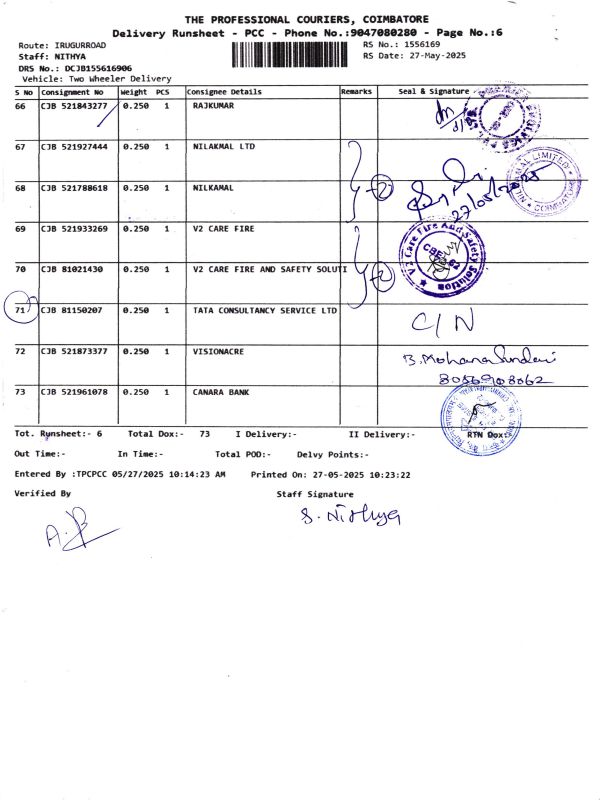 THE PROFESSIONAL COURIERS, COIMBATORE
Delivery Runsheet - PCC - Phone No.:9047080280 - Page No.:6
Route: IRUGURROAD
RS No.: 1556169
Staff: NITHYA
RS Date: 27-May-2025
DRS No.: DCJB155616906
Vehicle: Two Wheeler Delivery
S No Consignment No Weight PCS Consignee Details Remarks Seal & Signature
66 CJB 521843277 0.250 1 RAJKUMAR
67 CJB 521927444 0.250 1 NILAKMAL LTD
68 CJB 521788618 0.250 1 NILKAMAL
2
27/05/2025
LIMITED
COIMBATORE
69 CJB 521933269 0.250 1 V2 CARE FIRE
70 CJB 81021430 0.250 1 V2 CARE FIRE AND SAFETY SOLUTI
2
V2 Care Fire And Safety Solution
71 CJB 81150207 0.250 1 TATA CONSULTANCY SERVICE LTD
C/N
72 CJB 521873377 0.250 1 VISIONACRE
B. Mohana Sundari
8056908062
73 CJB 521961078 0.250 1 CANARA BANK
Tot. Runsheet:- 6 Total Dox:- 73 I Delivery:- II Delivery:- RTN Dox:-
Out Time:- In Time:- Total POD:- Delvy Points:-
Entered By :TPCPCC 05/27/2025 10:14:23 AM Printed On: 27-05-2025 10:23:22
Verified By Staff Signature
S. Nithya